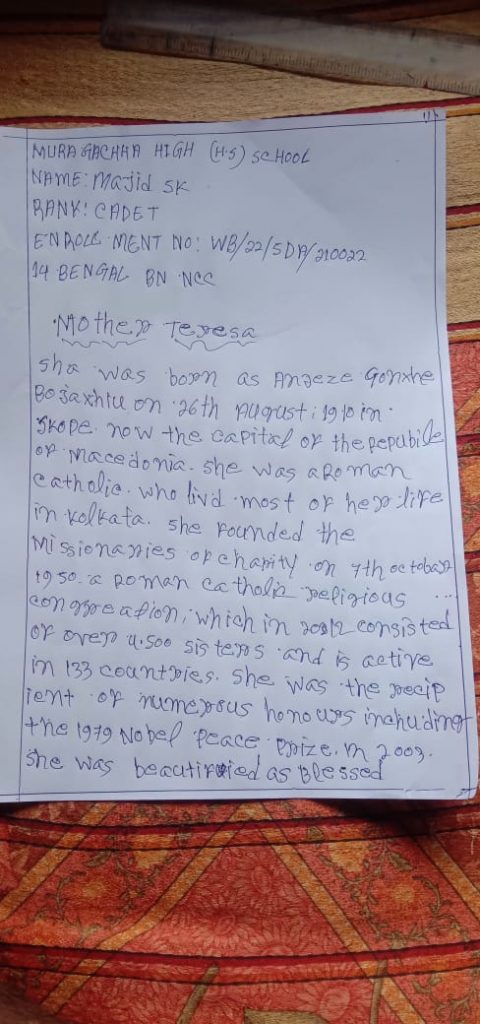 MURAGACHHA HIGH (H.S) SCHOOL
NAME: Majid SK
RANK: CADET
ENROLL MENT NO: WB/22/SDA/210022
14 BENGAL BN NCC
Mother Teresa
sha was born as Anjeze Gonxhe
Bojaxhiu on 26th August, 1910 in
Skope. now the capital of the Repubile
of Macedonia. she was a Roman
catholic. who livd most of her life
in kolkata. she Founded the
Missionaries of charity on 7th october
1950. a Roman catholic religious
congreation, which in 2012 consisted
of over 4.500 sisters and is active
in 133 countries. she was the recip
ient of numerous honours inchuding
the 1979 Nobel peace prize. in 2003.
she was beautified as Blessed